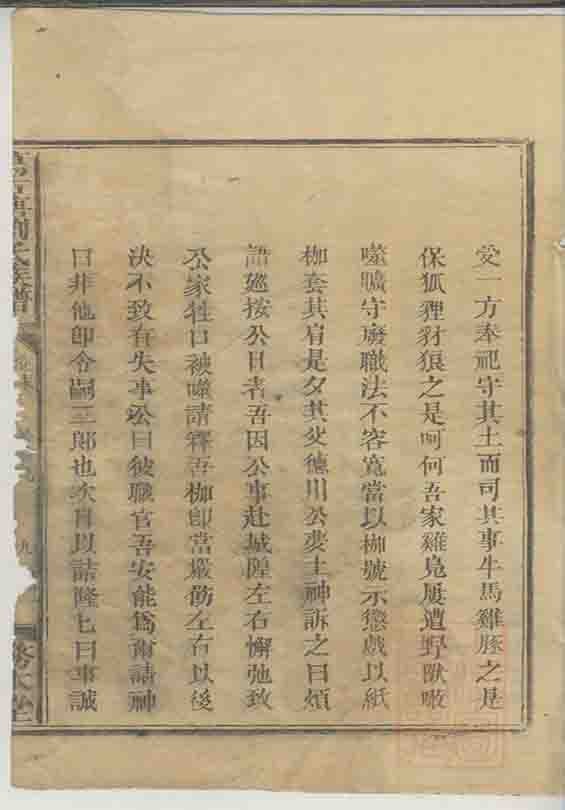 受一方奉祀守其土而司其事牛馬雞豚之是
保狐狸豺狼之是呵何吾家雞鳧屢遭野獸噉
噬曠守廢職法不容寬當以枷號示懲戲以紙
枷套其肩是夕其父德川公夢土神訴之曰煩
語廵按公日者吾因公事赴城隍左右懈弛致
公家牲口被噬請釋吾枷卽當嚴飭左右以後
決不致有失事公曰彼職官吾安能爲爾請神
曰非他卽令嗣三郎也次日以詰隆七曰事誠
劉氏族譜
九